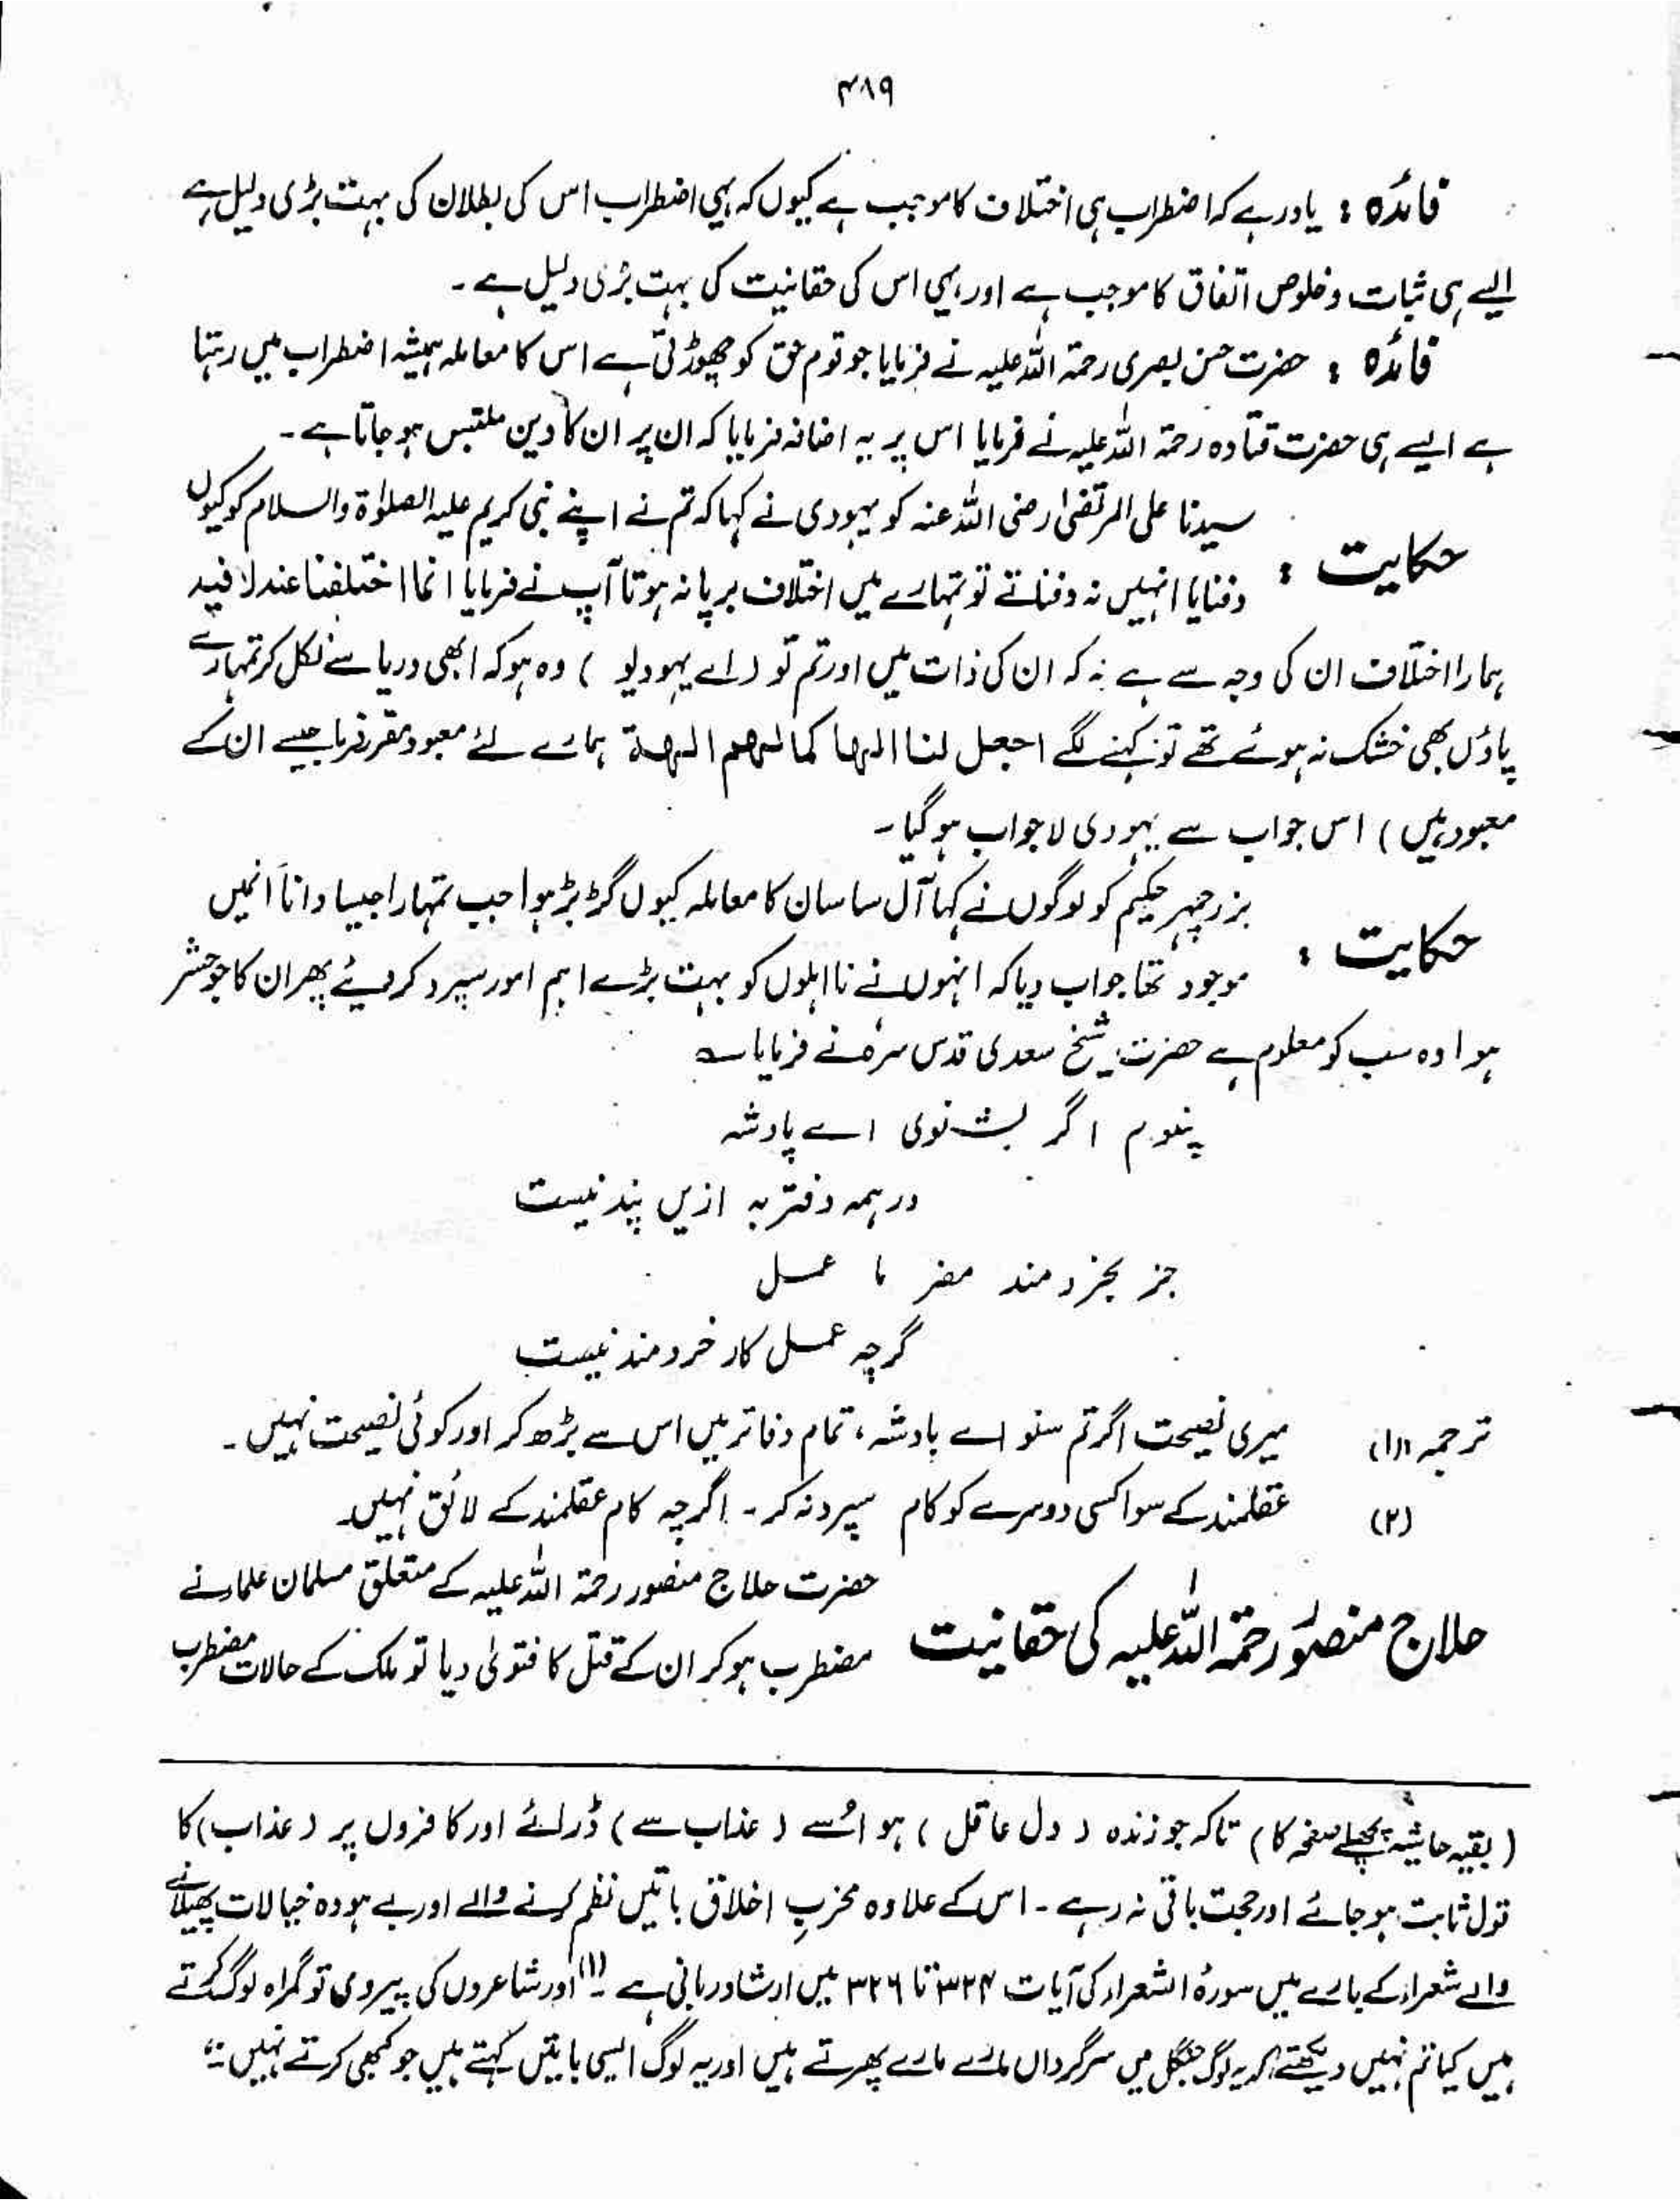 ۴۸۹
فائدہ : یاد رہے کہ اضطراب ہی اختلاف کا موجب ہے کیوں کہ یہی اضطراب اس کی بطلان کی بہت بڑی دلیل ہے
ایسے ہی ثبات و خلوص اتفاق کا موجب ہے اور یہی اس کی حقانیت کی بہت بڑی دلیل ہے ۔
فائدہ : حضرت حسن بصری رحمۃ اللہ علیہ نے فرمایا جو قوم حق کو چھوڑتی ہے اس کا معاملہ ہمیشہ اضطراب میں رہتا
ہے ایسے ہی حضرت قتادہ رحمۃ اللہ علیہ نے فرمایا اس پر یہ اضافہ فرمایا کہ ان پر ان کا دین ملتبس ہو جاتا ہے ۔
حکایت : سیدنا علی المرتضیٰ رضی اللہ عنہ کو یہودی نے کہا کہ تم نے اپنے نبی کریم علیہ الصلوٰۃ والسلام کو کیوں
دفنایا انہیں نہ دفناتے تو تمہارے میں اختلاف برپا نہ ہوتا آپ نے فرمایا انما اختلفنا عنہ لا فیہ
ہمارا اختلاف ان کی وجہ سے ہے نہ کہ ان کی ذات میں اور تم تو ( اے یہودیو ) وہ ہو کہ ابھی دریا سے نکل کر تمہارے
پاؤں بھی خشک نہ ہوئے تھے تو کہنے لگے اجعل لنا الہا کما لہم الہۃ ہمارے لئے معبود مقرر فرما جیسے ان کے
معبود ہیں ) اس جواب سے یہودی لا جواب ہو گیا ۔
حکایت : بزرجمہر حکیم کو لوگوں نے کہا آل ساسان کا معاملہ کیوں گڑ بڑ ہوا جب تمہارا جیسا دانا انمیں
موجود تھا جواب دیا کہ انہوں نے نا اہلوں کو بہت بڑے اہم امور سپرد کر دیئے پھر ان کا جو حشر
ہوا وہ سب کو معلوم ہے حضرت شیخ سعدی قدس سرہ نے فرمایا ؎
پندم اگر بشنوی اے پادشہ
در ہمہ دفتر بہ ازیں پند نیست
جز بخردمند مفرما عمل
گرچہ عمل کار خردمند نیست
ترجمہ (۱) میری نصیحت اگر تم سنو اے بادشہ ، تمام دفاتر میں اس سے بڑھ کر اور کوئی نصیحت نہیں ۔
(۲) عقلمند کے سوا کسی دوسرے کو کام سپرد نہ کر ۔ اگرچہ کام عقلمند کے لائق نہیں۔
حلاج منصور رحمۃ اللہ علیہ کی حقانیت حضرت حلاج منصور رحمۃ اللہ علیہ کے متعلق مسلمان علماء نے
مضطرب ہو کر ان کے قتل کا فتویٰ دیا تو ملک کے حالات مضطرب
( بقیہ حاشیہ پچھلے صفحہ کا ) تاکہ جو زندہ ( دل عاقل ) ہو اُسے ( عذاب سے ) ڈرائے اور کافروں پر ( عذاب ) کا
قول ثابت ہو جائے اور حجت باقی نہ رہے ۔ اس کے علاوہ مخربِ اخلاق باتیں نظم کرنے والے اور بے ہودہ خیالات پھیلانے
والے شعراء کے بارے میں سورۂ الشعراء کی آیات ۳۲۴ تا ۳۲۶ میں ارشاد ربانی ہے ! (۱) اور شاعروں کی پیروی تو گمراہ لوگ کرتے
ہیں کیا تم نہیں دیکھتے کہ یہ لوگ جنگل میں سرگرداں مارے مارے پھرتے ہیں اور یہ لوگ ایسی باتیں کہتے ہیں جو کبھی کرتے نہیں ۔"